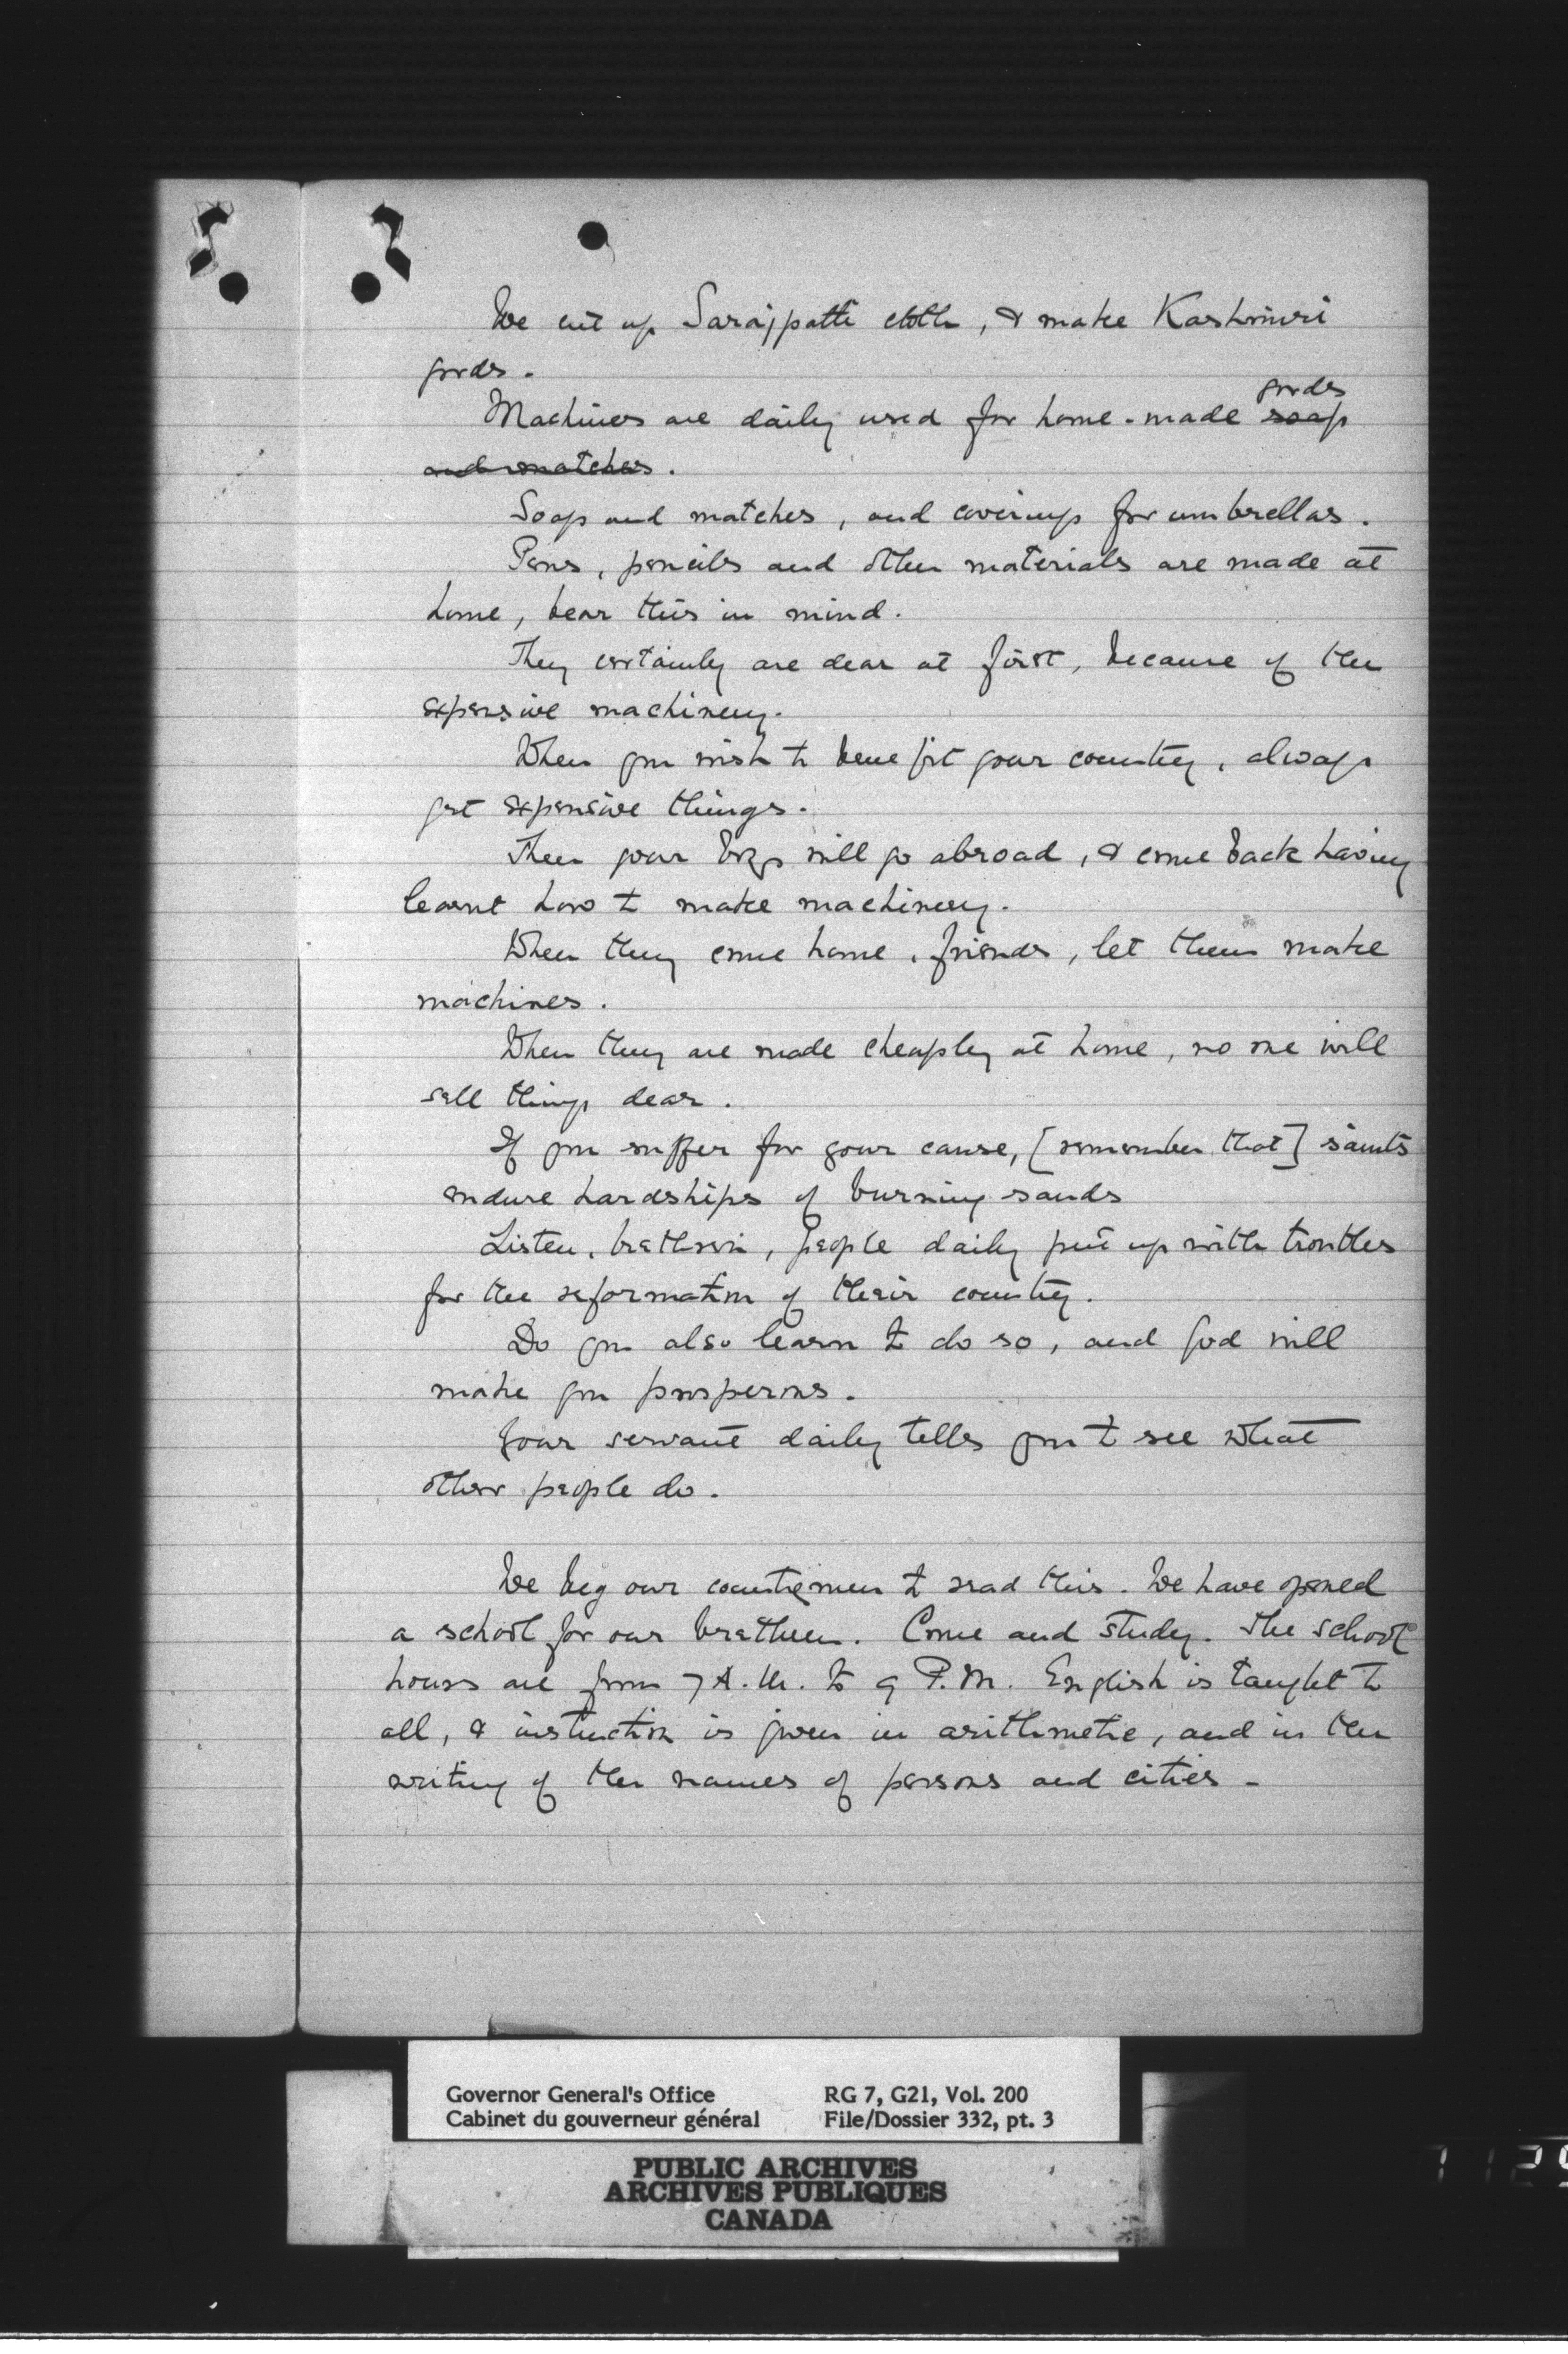 We cut up Sarajpatti cloth, & make Kashmiri
goods.
Machines are daily used for home-made soap goods
and matches.
Soap and matches, and coverings for umbrellas.
Pens, pencils and other materials are made at
home, bear this in mind.
They certainly are dear at first, because of the
expensive machinery.
When you wish to benefit your country, always
get expensive things.
Then your boys will go abroad, & come back having
learnt how to make machinery.
When they come home, friends, let them make
machines.
When they are made cheaply at home, no one will
sell things dear.
If you suffer for your cause, [remember that] saints
endure hardships of burning sands
Listen, brethren, people daily put up with troubles
for the reformation of their country.
Do you also learn to do so, and God will
make you prosperous.
Your servant daily tells you to see what
other people do.
We beg our countrymen to read this. We have opened
a school for our brethren. Come and study. The school
hours are from 7 A.M. to 9 P.M. English is taught to
all, & instruction is given in arithmetic, and in the
writing of the names of persons and cities -
Governor General's Office RG 7, G21, Vol. 200
Cabinet du gouverneur général File/Dossier 332, pt. 3
PUBLIC ARCHIVES
ARCHIVES PUBLIQUES
CANADA